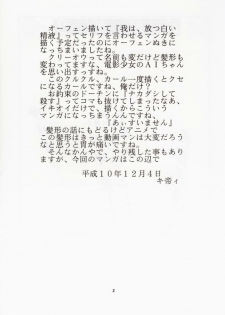 オーフェン描いて『我は、放つ白い
精液』ってセリフを言わせるマンガを
描く予定だったのにオーフェンぬきに
なっちまいましたね。
クリーオウって名前も変だけど髪形も
変わってますな、電影少女のAIちゃん
を思い出すっすね。
このクルクル、カール一度描くとクセ
になるカールですね、俺だけ?
お約束のドーチンに『ナカダシして
殺す』ってコマも抜けてしまったなあ、
イキオイだけで、描くからこういう
マンガになっちまうんですね。
『あぃすいません』
髪形の話にもどるけどアニメで
この髪形はきっと動画マン大変だろう
なと思うと胃が痛いですね。
そんなかんやで、やり残した事もあり
ますが、今回のマンガはこの辺で
平成10年12月4日
キ帝ィ
2